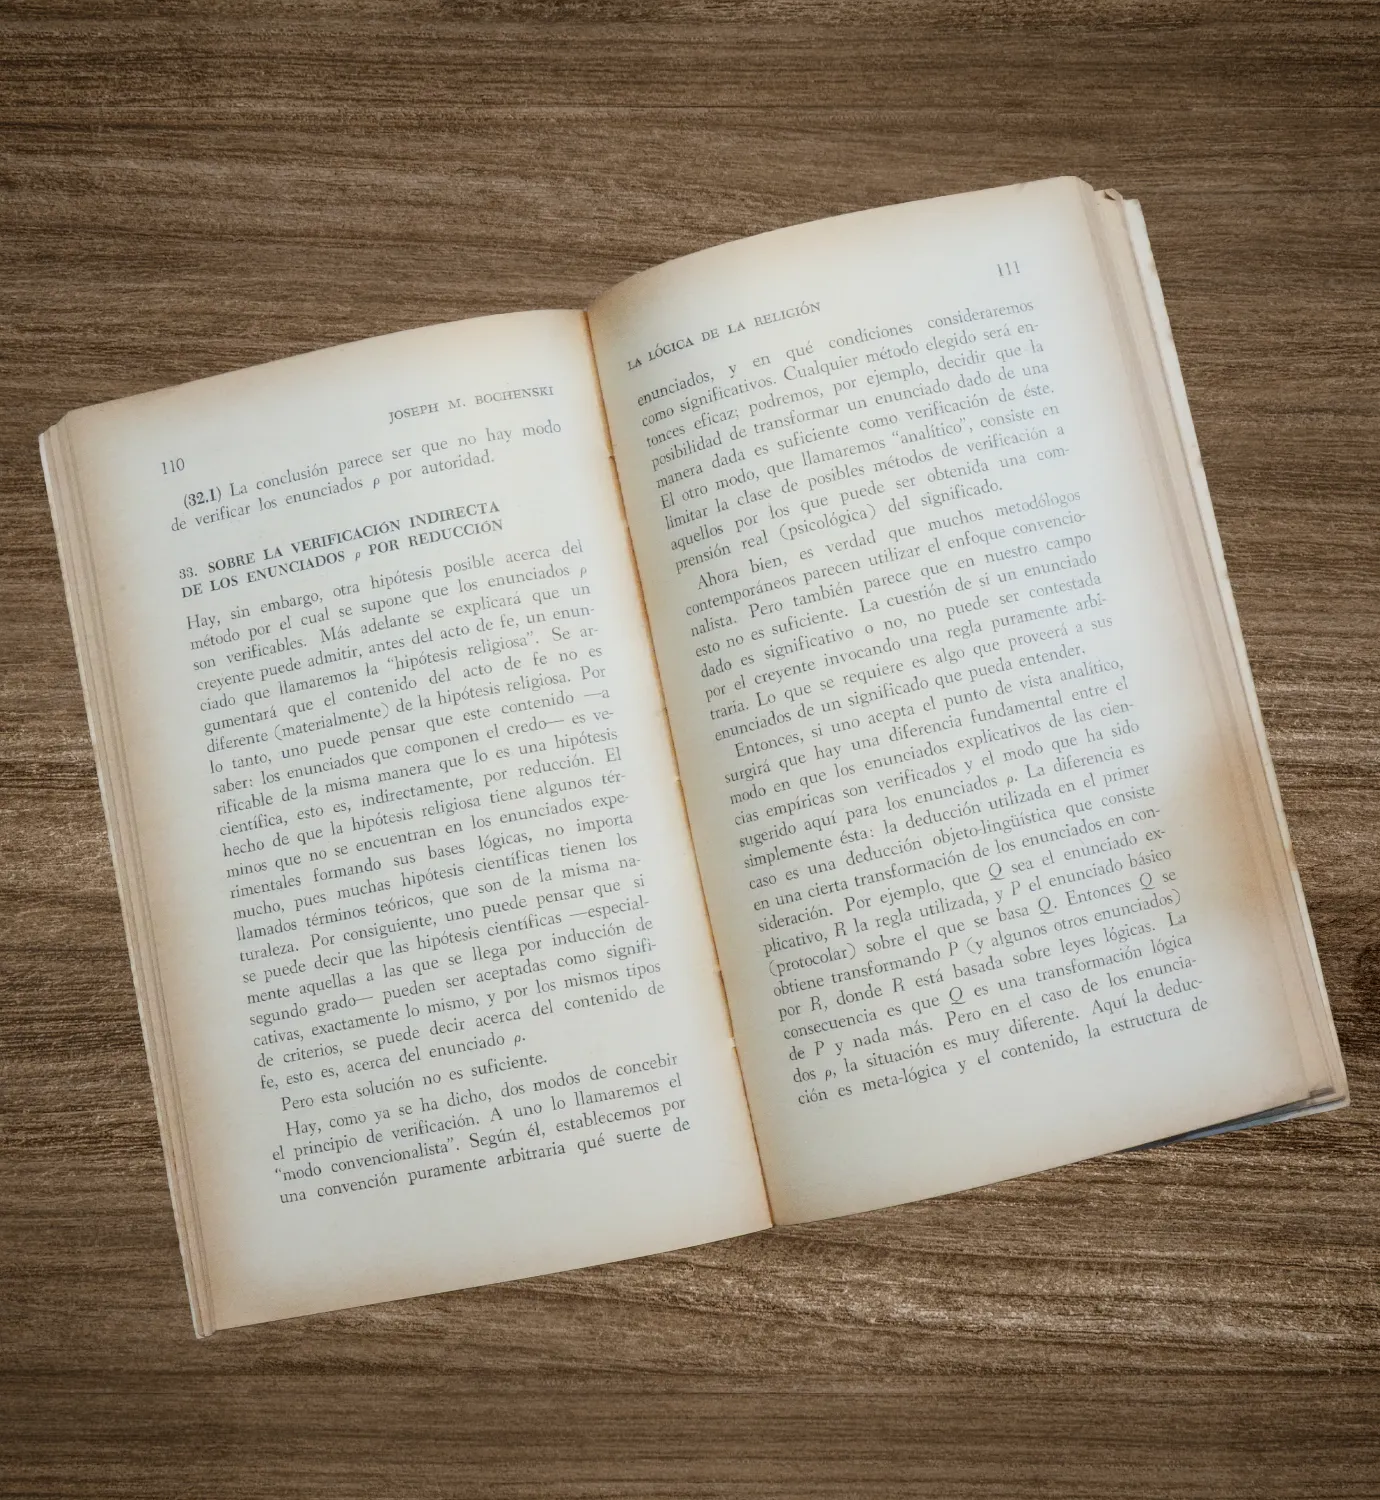 110
JOSEPH M. BOCHENSKI
(32.1) La conclusión parece ser que no hay modo
de verificar los enunciados ρ por autoridad.
33. SOBRE LA VERIFICACIÓN INDIRECTA
DE LOS ENUNCIADOS ρ POR REDUCCIÓN
Hay, sin embargo, otra hipótesis posible acerca del
método por el cual se supone que los enunciados ρ
son verificables. Más adelante se explicará que un
creyente puede admitir, antes del acto de fe, un enun-
ciado que llamaremos la “hipótesis religiosa”. Se ar-
gumentará que el contenido del acto de fe no es
diferente (materialmente) de la hipótesis religiosa. Por
lo tanto, uno puede pensar que este contenido —a
saber: los enunciados que componen el credo— es ve-
rificable de la misma manera que lo es una hipótesis
científica, esto es, indirectamente, por reducción. El
hecho de que la hipótesis religiosa tiene algunos tér-
minos que no se encuentran en los enunciados expe-
rimentales formando sus bases lógicas, no importa
mucho, pues muchas hipótesis científicas tienen los
llamados términos teóricos, que son de la misma na-
turaleza. Por consiguiente, uno puede pensar que si
se puede decir que las hipótesis científicas —especial-
mente aquellas a las que se llega por inducción de
segundo grado— pueden ser aceptadas como signifi-
cativas, exactamente lo mismo, y por los mismos tipos
de criterios, se puede decir acerca del contenido de
fe, esto es, acerca del enunciado ρ.
Pero esta solución no es suficiente.
Hay, como ya se ha dicho, dos modos de concebir
el principio de verificación. A uno lo llamaremos el
“modo convencionalista”. Según él, establecemos por
una convención puramente arbitraria qué suerte de
LA LÓGICA DE LA RELIGIÓN
111
enunciados, y en qué condiciones consideraremos
como significativos. Cualquier método elegido será en-
tonces eficaz; podremos, por ejemplo, decidir que la
posibilidad de transformar un enunciado dado de una
manera dada es suficiente como verificación de éste.
El otro modo, que llamaremos “analítico”, consiste en
limitar la clase de posibles métodos de verificación a
aquellos por los que puede ser obtenida una com-
prensión real (psicológica) del significado.
Ahora bien, es verdad que muchos metodólogos
contemporáneos parecen utilizar el enfoque convencio-
nalista. Pero también parece que en nuestro campo
esto no es suficiente. La cuestión de si un enunciado
dado es significativo o no, no puede ser contestada
por el creyente invocando una regla puramente arbi-
traria. Lo que se requiere es algo que proveerá a sus
enunciados de un significado que pueda entender.
Entonces, si uno acepta el punto de vista analítico,
surgirá que hay una diferencia fundamental entre el
modo en que los enunciados explicativos de las cien-
cias empíricas son verificados y el modo que ha sido
sugerido aquí para los enunciados ρ. La diferencia es
simplemente ésta: la deducción utilizada en el primer
caso es una deducción objeto-lingüística que consiste
en una cierta transformación de los enunciados en con-
sideración. Por ejemplo, que Q sea el enunciado ex-
plicativo, R la regla utilizada, y P el enunciado básico
(protocolar) sobre el que se basa Q. Entonces Q se
obtiene transformando P (y algunos otros enunciados)
por R, donde R está basada sobre leyes lógicas. La
consecuencia es que Q es una transformación lógica
de P y nada más. Pero en el caso de los enuncia-
dos ρ, la situación es muy diferente. Aquí la deduc-
ción es meta-lógica y el contenido, la estructura de